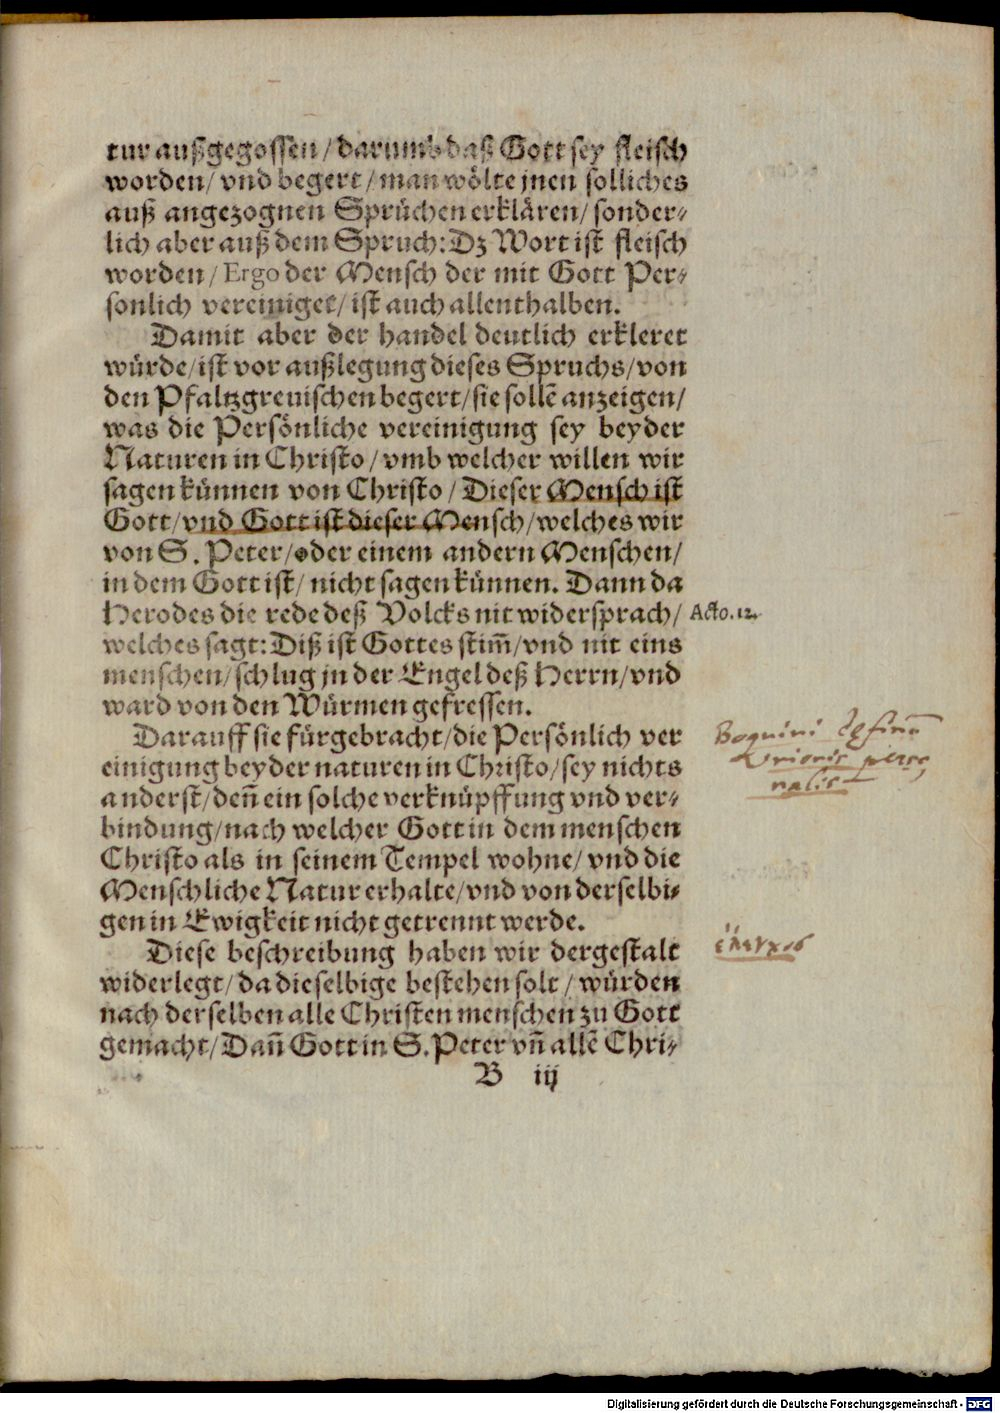 tur außgegossen / darumb daß Gott sey fleisch
worden / vnd begert / man wölte jnen solliches
auß angezognen Sprüchen erklären / sonder⸗
lich aber auß dem Spruch: Dz Wort ist fleisch
worden / Ergo der Mensch der mit Gott Per⸗
sonlich vereiniget / ist auch allenthalben.
Damit aber der handel deutlich erkleret
würde / ist vor außlegung dieses Spruchs / von
den Pfaltzgreuischen begert / sie sollẽ anzeigen /
was die Persönliche vereinigung sey beyder
Naturen in Christo / vmb welcher willen wir
sagen künnen von Christo / Dieser Mensch ist
Gott / vnd Gott ist dieser Mensch / welches wir
von S. Peter / oder einem andern Menschen /
in dem Gott ist / nicht sagen künnen. Dann da
Herodes die rede deß Volcks nit widersprach /
Acto. 12.
welches sagt: Diß ist Gottes stim̃ / vnd nit eins
menschen / schlug jn der Engel deß Herrn / vnd
ward von den Würmen gefressen.
Darauff sie fürgebracht / die Persönlich ver
einigung beyder naturen in Christo / sey nichts
anderst / deñ ein solche verknüpffung vnd ver⸗
bindung / nach welcher Gott in dem menschen
Christo als in seinem Tempel wohne / vnd die
Menschliche Natur erhalte / vnd von derselbi⸗
gen in Ewigkeit nicht getrennt werde.
Diese beschreibung haben wir dergestalt
widerlegt / da dieselbige bestehen solt / würden
nach derselben alle Christen menschen zu Gott
gemacht / Dañ Gott in S. Peter vñ allẽ Chri⸗
B iij
Boquini
Vnionis perso
nalis
Digitalisierung gefördert durch die Deutsche Forschungsgemeinschaft - DFG